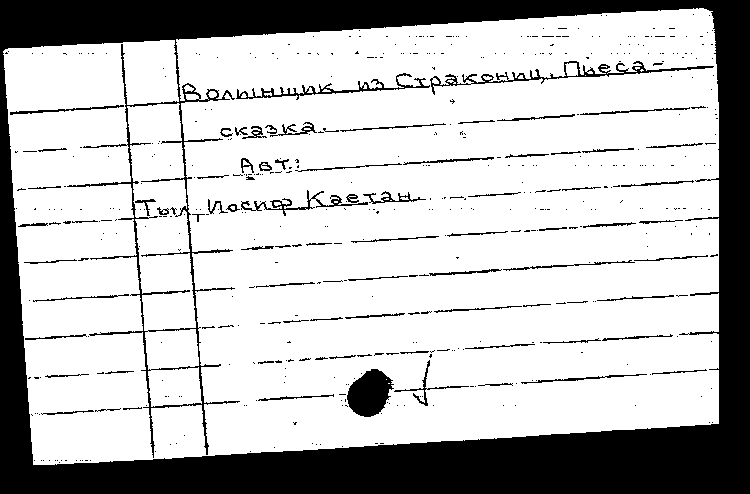 Волынщик из Стракониц. Пьеса-
сказка.
Авт.:
Тыл, Иосиф Каетан.